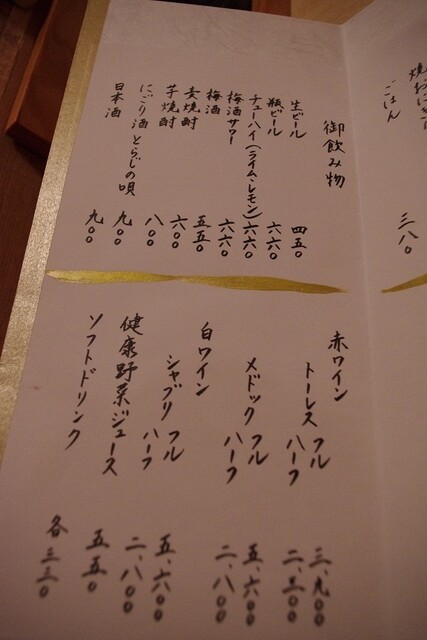 ごはん 三八〇
御飲み物
生ビール 四五〇
瓶ビール 六六〇
チューハイ(ライム・レモン) 六六〇
梅酒サワー 六六〇
梅酒 五五〇
麦焼酎 六〇〇
芋焼酎 八〇〇
にごり酒 とらじの唄 九〇〇
日本酒 九〇〇
赤ワイン
トーレス フル 三、九〇〇
ハーフ 二、三〇〇
メドック フル 五、六〇〇
ハーフ 二、八〇〇
白ワイン
シャブリ フル 五、六〇〇
ハーフ 二、八〇〇
健康野菜ジュース 五五〇
ソフトドリンク 各三三〇